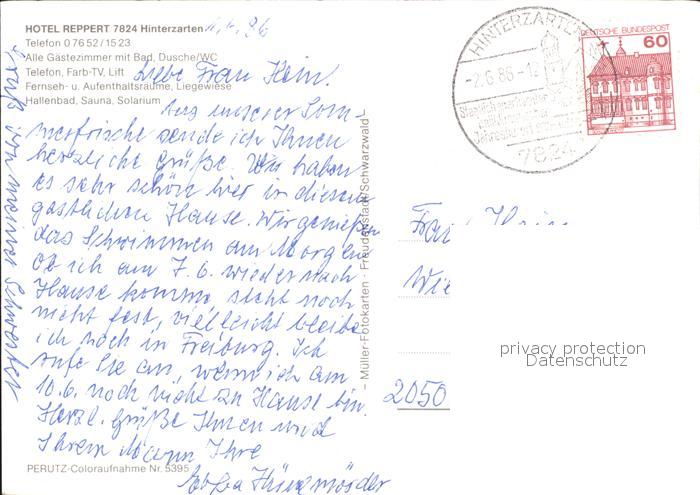 HOTEL REPPERT 7824 Hinterzarten
Telefon 0 76 52 / 15 23
Alle Gästezimmer mit Bad, Dusche/WC
Telefon, Farb-TV, Lift
Fernseh- u. Aufenthaltsräume, Liegewiese
Hallenbad, Sauna, Solarium
Liebe Frau Hein.
Aus unserer Som-
merfrische sende ich Ihnen
herzliche Grüße. Wir haben
es sehr schön hier in diesem
gastlichen Hause. Wir genießen
das Schwimmen am Morgen
Ob ich am 7.6. wieder nach
Hause komme steht noch
nicht fest, vielleicht bleibe
ich noch in Freiburg. Ich
rufe Sie an, wenn ich am
10.6. noch nicht zu Hause bin.
Herzl. Grüße Ihnen und
Ihrem Mann Ihre
Gruß von meiner Schwester
PERUTZ-Coloraufnahme Nr. 5395
– Müller-Fotokarten · Freudenstadt/Schwarzwald
HINTERZARTEN
-2.6.86-12
7824
DEUTSCHE BUNDESPOST
60
Frau
Wie
2050
privacy protection
Datenschutz